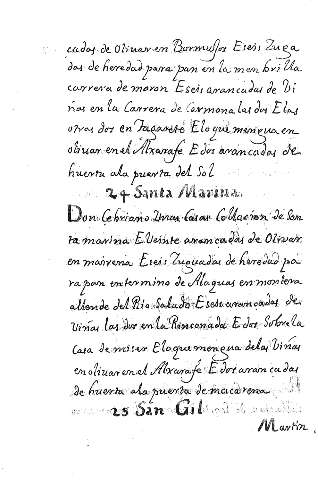 cadas de Oliuar en Bormujos E seis Iuga
das de heredad para pan en la menbrilla
carrera de moron E seis arancadas de Vi
ñas en la Carrera de Carmona las dos E las
otras dos en Tagarete E lo que mengua en
oliuar en el Alxarafe E dos arancadas de
huerta a la puerta del Sol
24 Santa Marina
Don Cebriano Unas Casas Collacion de San
ta marina E Veinte arancadas de Oliuar
en mairena E seis Iuguadas de heredad pa
ra pan en termino de Alaquas en montera
allende del Rio Salado E seis arancadas de
Viñas las dos en la Rinconada E dos Sobre la
Casa de miser E lo que mengua de las Viñas
en oliuar en el Alxarafe E dos arancadas
de huerta a la puerta de macarena
25 San Gil
Martin